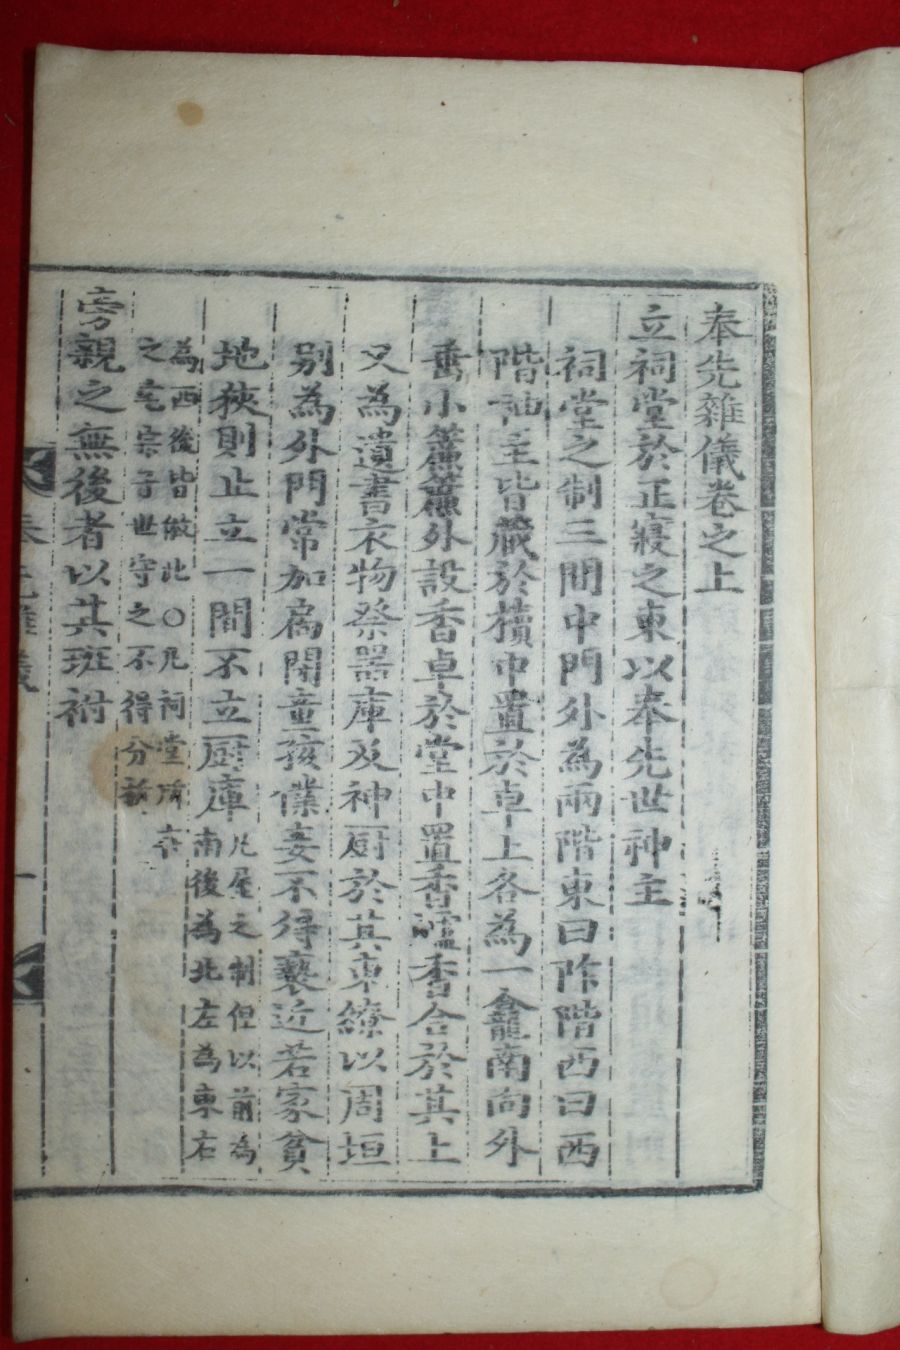 奉先雜儀卷之上
立祠堂於正寢之東以奉先世神主
祠堂之制三間中門外為兩階東曰阼階西曰西
階神主皆藏於櫝中置於卓上各為一龕南向外
垂小簾簾外設香卓於堂中置香爐香合於其上
又為遺書衣物祭器庫及神厨於其東繚以周垣
別為外門常加扃閉童孩僕妾不得褻近若家貧
地狹則止立一間不立厨庫
凡屋之制但以前為
南後為北左為東右
為西後皆倣此〇凡祠堂所在
之宅宗子世守之不得分析
旁親之無後者以其班祔
奉先雜儀
一